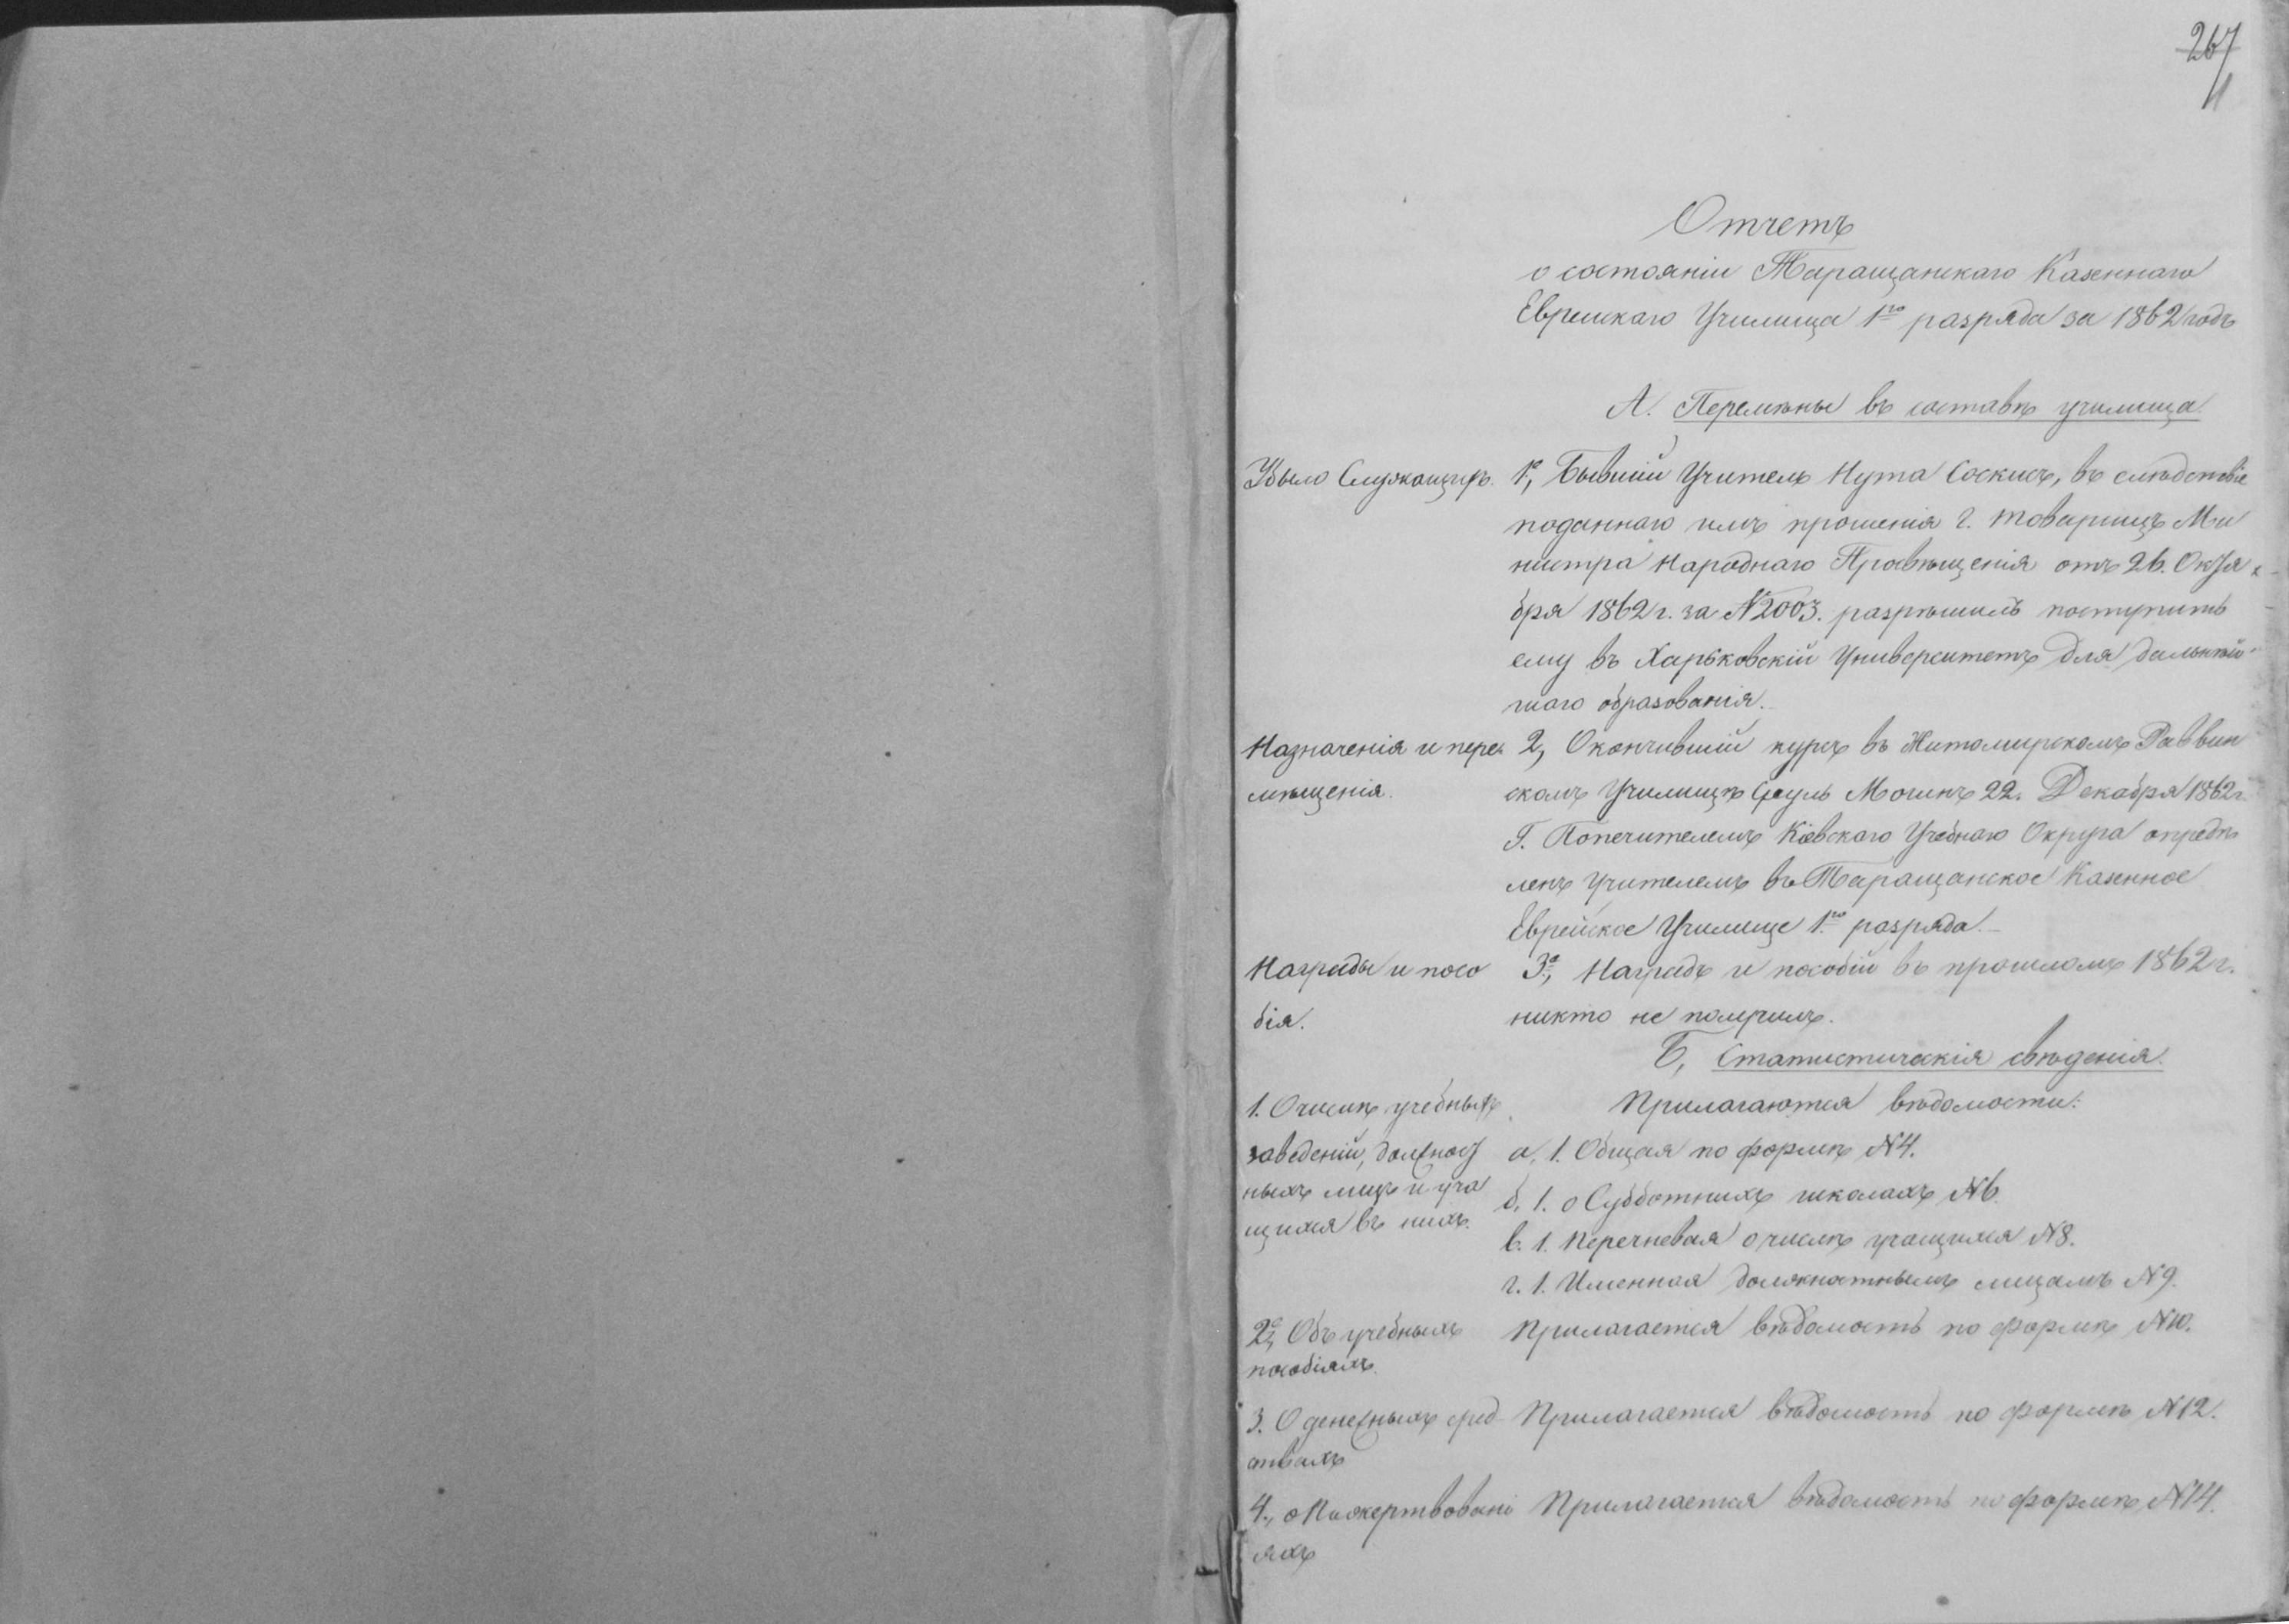 267
1
Отчетъ
о состояніи Таращанскаго Казеннаго
Еврейскаго Училища 1го разряда за 1862 годъ
А. Перемѣны въ составѣ училища.
Убыло Служащихъ.
1е, Бывшій Учитель Нута Соскисъ, въ слѣдствіе
поданнаго имъ прошенія Г. Товарищъ Ми
нистра Народнаго Просвѣщенія отъ 26. Октя
бря 1862 г. за № 2003. разрѣшилъ поступить
ему въ Харьковскій Университетъ для дальнѣй-
шаго образованія.
Назначенія и пере
мѣщенія.
2, Окончившій курсъ въ Житомирскомъ Раввин
скомъ Училищѣ Сруль Могинъ 22. Декабря 1862 г.
Г. Попечителемъ Кіевскаго Учебнаго Округа опредѣ
ленъ Учителемъ въ Таращанское Казенное
Еврейское Училище 1го разряда.
Награды и посо
бія.
3е, Наградъ и пособій въ прошломъ 1862 г.
никто не получилъ.
Б, Статистическія свѣденія.
1. О числѣ учебныхъ
заведеній, должност
ныхъ лицъ и уча
щихся въ нихъ.
Прилагаются вѣдомости:
а, 1. Общая по формѣ №4.
б, 1. о Субботнихъ школахъ №6.
в. 1. Перечневая о числѣ учащихся №8.
г. 1. Именная должностнымъ лицамъ №9.
2е, Объ учебныхъ
пособіяхъ.
Прилагается вѣдомость по формѣ №10.
3. О денежныхъ сред-
ствахъ
Прилагается вѣдомость по формѣ №12.
4., о Пожертвовані
яхъ
Прилагается вѣдомость по формѣ №14.